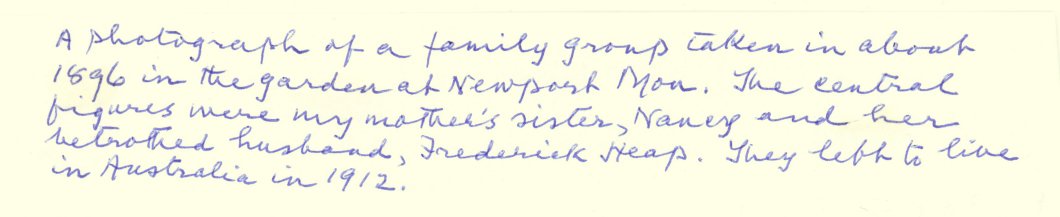 A photograph of a family group taken in about
1896 in the garden at Newport Mon. The central
figures were my mother's sister, Nancy and her
betrothed husband, Frederick Heap. They left to live
in Australia in 1912.